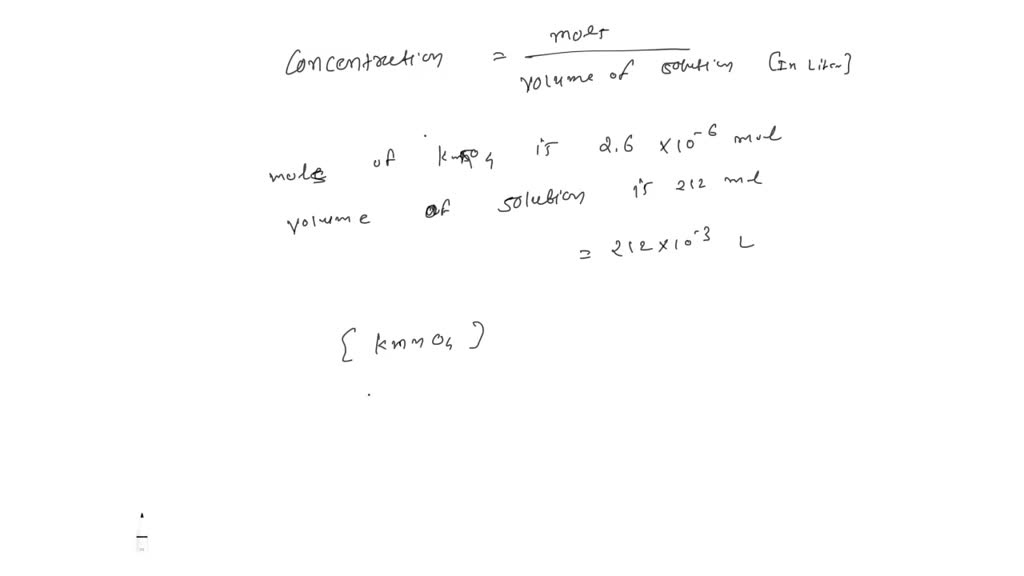 Concentration = moles / volume of solution [In Liter]
moles of kmnO4 is 2.6 ×10^-6 mol
volume of solution is 212 ml
= 212×10^-3 L
[ kmnO4 ]